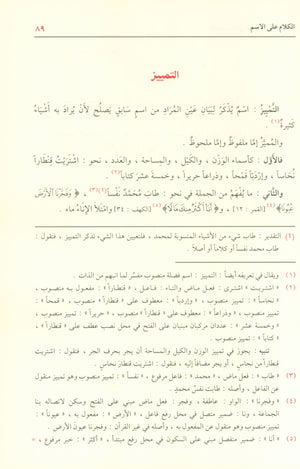 الكلام على الاسم ٨٩
التمييز
التَّمييزُ : اسْمٌ يُذْكَرُ لِبَيَانِ عَيْنِ المُرَادِ من اسمٍ سَابِقٍ يَصْلُح لأَنْ يُرادَ به أشْيَاءُ
كَثِيرةٌ(١) .
والمُمَيَّزُ إمَّا ملفوظٌ وإمَّا ملحوظٌ .
فالأوَّل : كأسماء الوَزْن ، والكَيْل ، والمِساحة ، والعَدد ، نحو : اشْتَرَيْتُ قِنْطاراً
نُحاساً ، وإرْدَبّاً قَمْحاً ، وذراعاً حريراً ، وخمسةَ عشرَ كتاباً(٢) .
والثَّاني : ما يُفْهَمُ من الجملة في نحو : طابَ مُحَمَّدٌ نَفْساً(٢)(٣) ، ﴿ وَفَجَّرْنَا الْأَرْضَ
عُيُونًا ﴾(٤) [القمر : ١٢] ، و﴿ أَنَا أَكْثَرُ مِنكَ مَالًا ﴾(٥) [الكهف : ٣٤] وامْتَلأَ الإناءُ ماء .
(٢) التقدير : طاب شيء من الأشياء المنسوبة لمحمد ، فلتعيين هذا الشيء تذكر التمييز ، فتقول :
طاب محمد نفساً أو كلاماً أو أصلاً .
(١) ويقال في تعريفه أيضاً : التمييز : اسم فضلة منصوب مفسّر لما انبهم من الذات .
(٢) « اشتريت » اشترى : فعل ماض والتاء : فـاعـل ، « قنطاراً » : مفعول به منصوب ،
« نحاساً » : تمييز منصوب ، « وإردباً » : معطوف على « قنطاراً » منصوب ، « قمحاً » :
تمييز منصوب ، « وذراعاً » : معطوف على « قنطاراً » منصوب ، « حريراً » : تمييز منصوب ،
« وخمسة عشر » : عددان مركبان مبنيان على الفتح في محل نصب عطف على « قنطاراً » ،
« كتاباً » : تمييز منصوب .
تنبيه : يجوز في تمييز الوزن والكيل والمساحة أن يجر بحرف الجر ، فتقول : اشتريت
قنطاراً من نحاس ، أو يجر مضافاً إليه ، فتقول : اشتريت قنطارَ نحاسٍ .
(٣) « طاب » : فعل ماض ، « محمد » : فاعل مرفوع ، « نفساً » : تمييز منصوب وهو تمييز منقول
عن الفاعل ، وأصله : طابت نفسُ محمدٍ .
(٤) « وفجرنا » : الواو : عاطفة ، وفجر : فعل ماض مبني على الفتح وسكن لاتصاله بنا
الجماعة ، ونا : ضمير متصل في محل رفع فاعل ، « الأرض » : مفعول به ، « عيوناً » :
تمييز منصوب وهو منقول عن المفعول به ، وأصله في غير القرآن : وفجرنا عيونَ الأرض .
(٥) « أنا » : ضمير منفصل مبني على السكون في محل رفع مبتدأ ، « أكثر » : خبر مرفوع ،